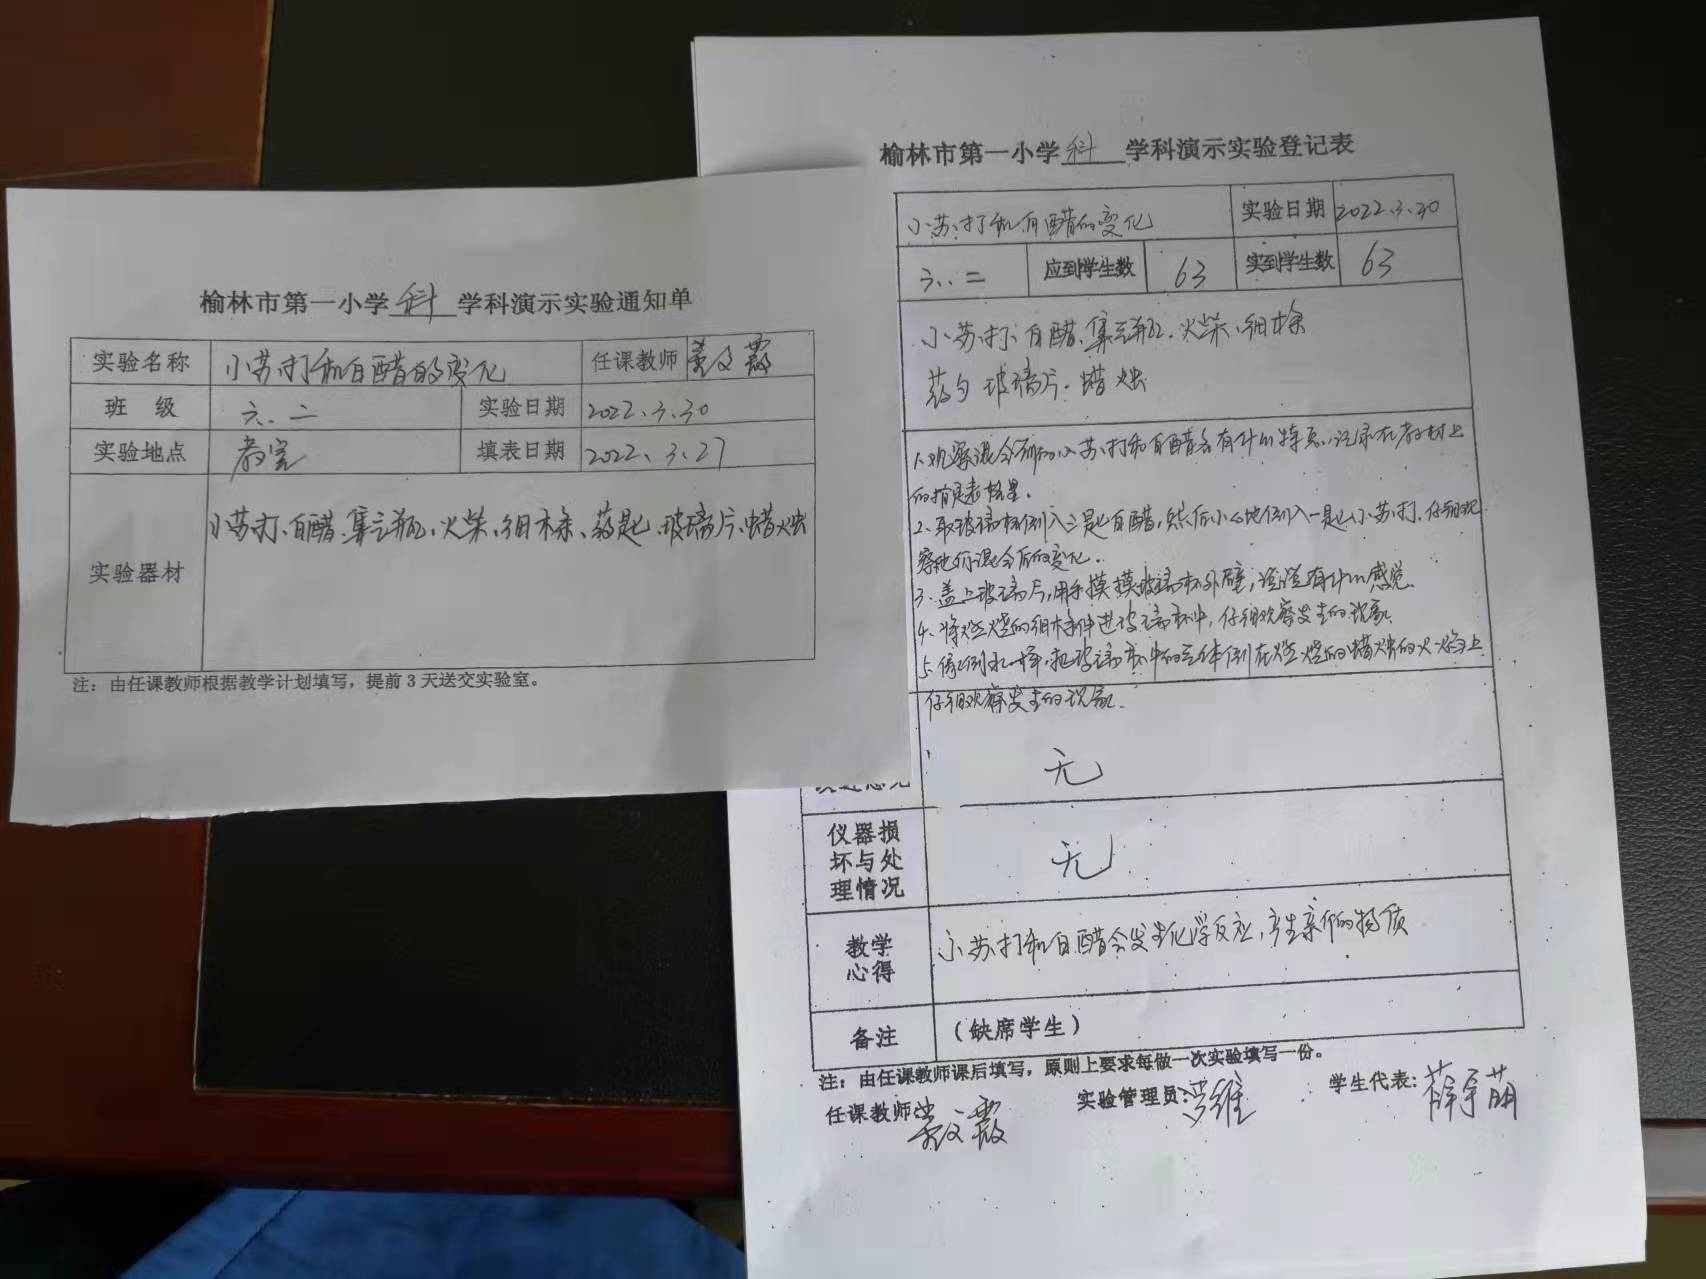 榆林市第一小学科学科演示实验通知单
实验名称 小苏打和白醋的变化 任课教师
班 级 六、二 实验日期 2022.3.30
实验地点 教室 填表日期 2022.3.27
实验器材 小苏打、白醋、集气瓶、火柴、细木条、药匙、玻璃片、蜡烛
注：由任课教师根据教学计划填写，提前3天送交实验室。
榆林市第一小学科学科演示实验登记表
小苏打和白醋的变化 实验日期 2022.3.30
六、二 应到学生数 63 实到学生数 63
小苏打、白醋、集气瓶、火柴、细木条
药勺 玻璃片、蜡烛
1、观察混合前的小苏打和白醋各有什么特点，记录在教材上
2、取玻璃杯倒入三匙白醋，然后小心地倒入一匙小苏打，仔细观
察他们混合后的变化。
3、盖上玻璃片，用手摸摸玻璃杯外壁，说说有什么感觉。
4、将燃烧的细木条伸进玻璃杯中，仔细观察发生的现象。
5、像倒水一样，把玻璃杯中的气体倒在燃烧的蜡烛的火焰上
仔细观察发生的现象。
无
仪器损
坏与处
理情况 无
教学
心得 小苏打和白醋会发生化学反应，产生新的物质
备注 （缺席学生）
注：由任课教师课后填写，原则上要求每做一次实验填写一份。
任课教师： 实验管理员： 学生代表：